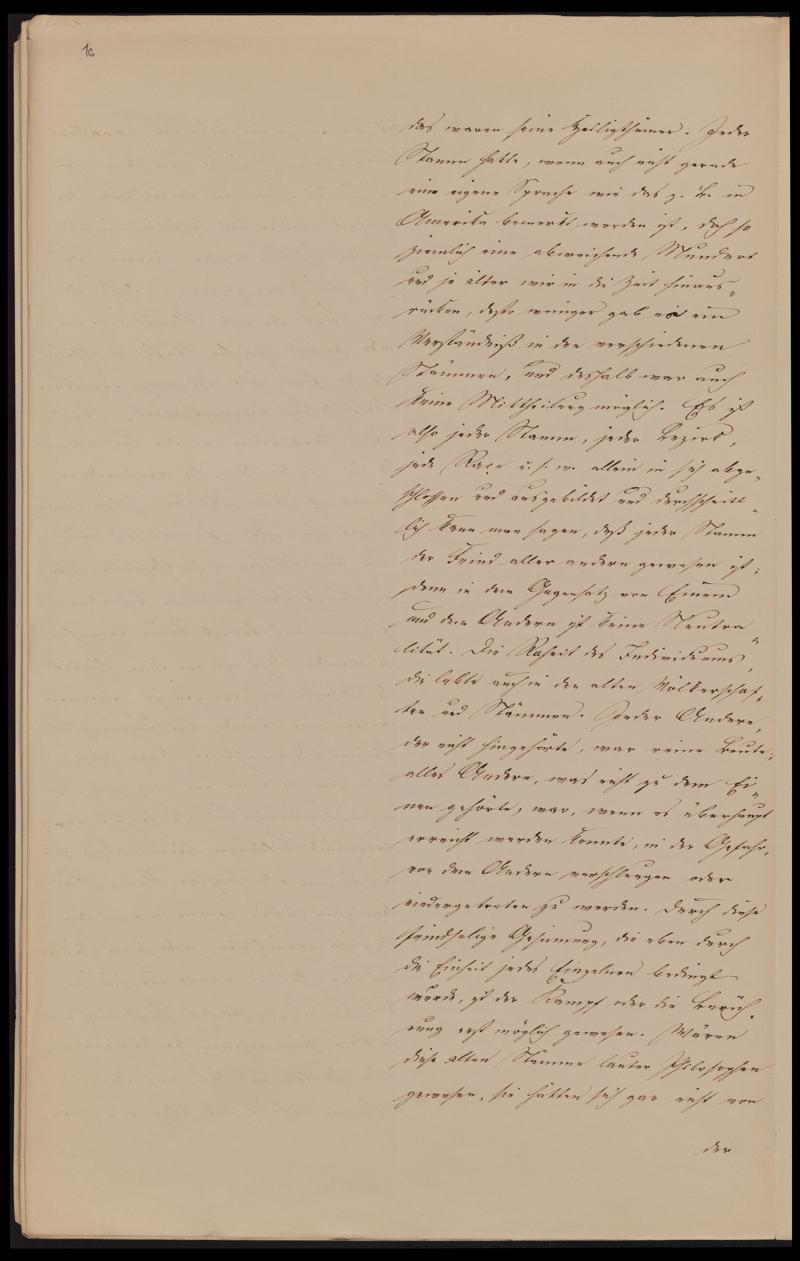 16
das waren seine Heiligthümer. Jeder
Stamm hatte, wenn auch nicht gerade
eine eigene Sprache wie das z. B. in
Amerika bemerkt worden ist, doch so
ziemlich eine abweichende Mundart
und je älter wir in die Zeit hinaus-
rücken, desto weniger gab es ein
Verständniß in den verschiedenen
Stämmen, und deshalb war auch
keine Mittheilung möglich. Es ist
also jeder Stamm, jeder Bezirk,
jede Raçe u. s. w. allein in sich abge-
schlossen und ausgebildet und durchschnitt-
lich kann man sagen, daß jeder Stamm
der Feind aller andern gewesen ist;
denn in dem Gegensatz von Einem
und dem Andern ist keine Neutra-
lität. Die Roheit des Individuums,
die lebte auch in den alten Völkerschaf-
ten und Stämmen. Jeder Andere,
der nicht hingehörte, war eine Beute,
alles Andere, was nicht zu dem Ei-
nen gehörte, war, wenn es überhaupt
erreicht werden konnte, in der Gefahr,
von dem Andern verschlungen oder
niedergetreten zu werden. Durch diese
feindselige Gesinnung, die eben durch
die Einheit jedes Einzelnen bedingt
wurde, ist der Kampf oder die Berüh-
rung erst möglich gewesen. Wären
diese alten Stämme lauter Philosophen
gewesen, sie hätten sich gar nicht von
der